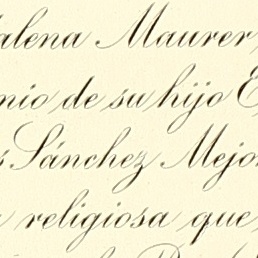 alena Maurer,
nio de su hijo E
s Sánchez Mejor
religiosa que,